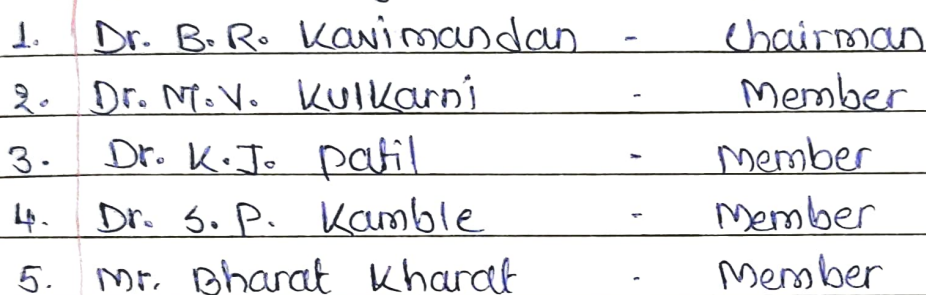 1. Dr. B. R. Kavimandan - Chairman
2. Dr. M. V. Kulkarni - Member
3. Dr. K. J. Patil - Member
4. Dr. S. P. Kamble - Member
5. Mr. Bharat Kharat - Member